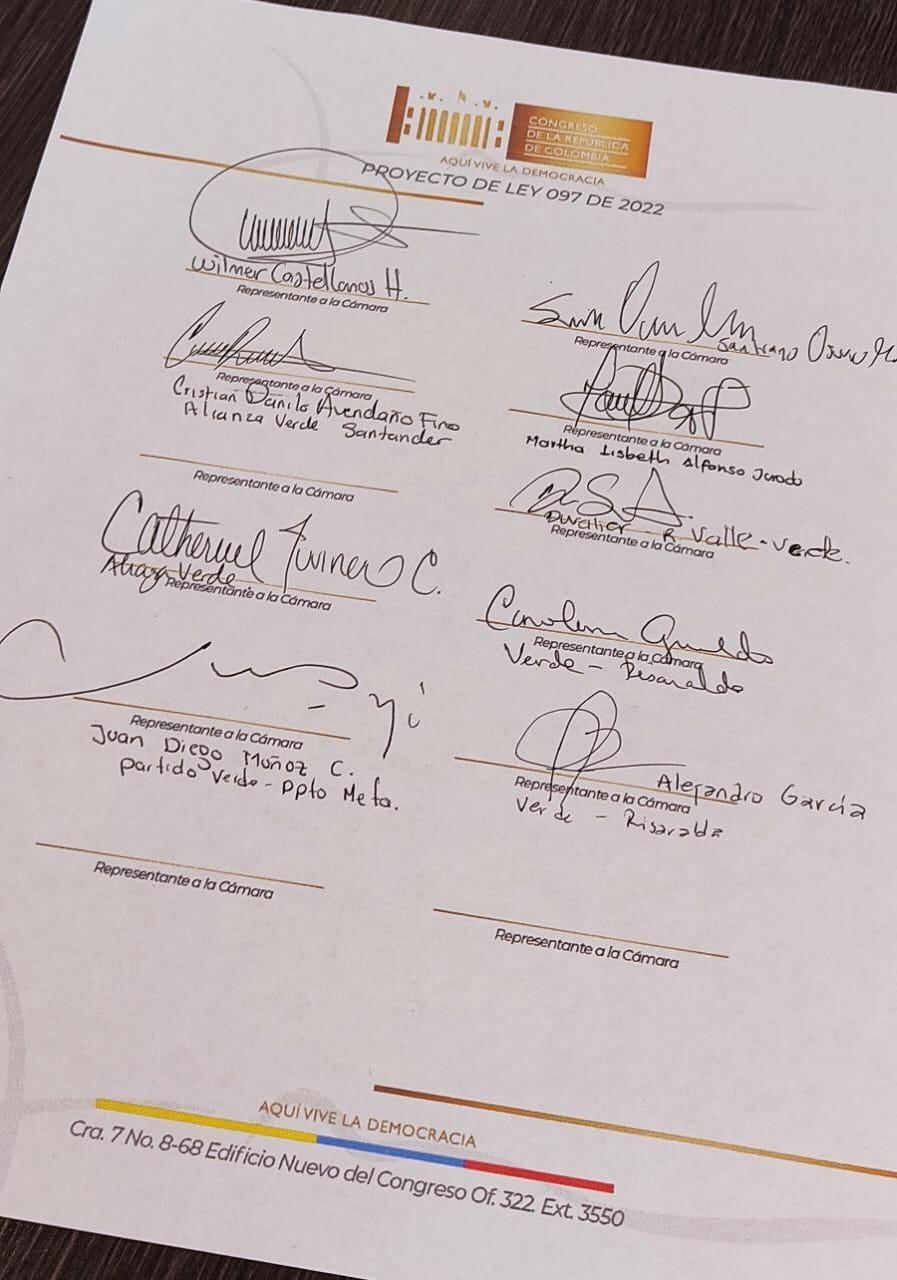 CONGRESO
DE LA REPÚBLICA
DE COLOMBIA
AQUÍ VIVE LA DEMOCRACIA
PROYECTO DE LEY 097 DE 2022
Wilmer Castellanos H.
Representante a la Cámara
Santiago
Representante a la Cámara
Representante a la Cámara
Cristian Danilo Avendaño Fino
Alianza Verde Santander
Representante a la Cámara
Martha Lisbeth Alfonso Jurado
Representante a la Cámara
Duvalier R. Valle - Verde.
Representante a la Cámara
Catherine Juvinao C.
Verde
Representante a la Cámara
Carolina Giraldo
Representante a la Cámara
Verde - Risaralda
Representante a la Cámara
Juan Diego Muñoz C.
Partido Verde - Dpto Meta.
Alejandro García
Representante a la Cámara
Verde - Risaralda
Representante a la Cámara
Representante a la Cámara
AQUÍ VIVE LA DEMOCRACIA
Cra. 7 No. 8-68 Edificio Nuevo del Congreso Of. 322. Ext. 3550